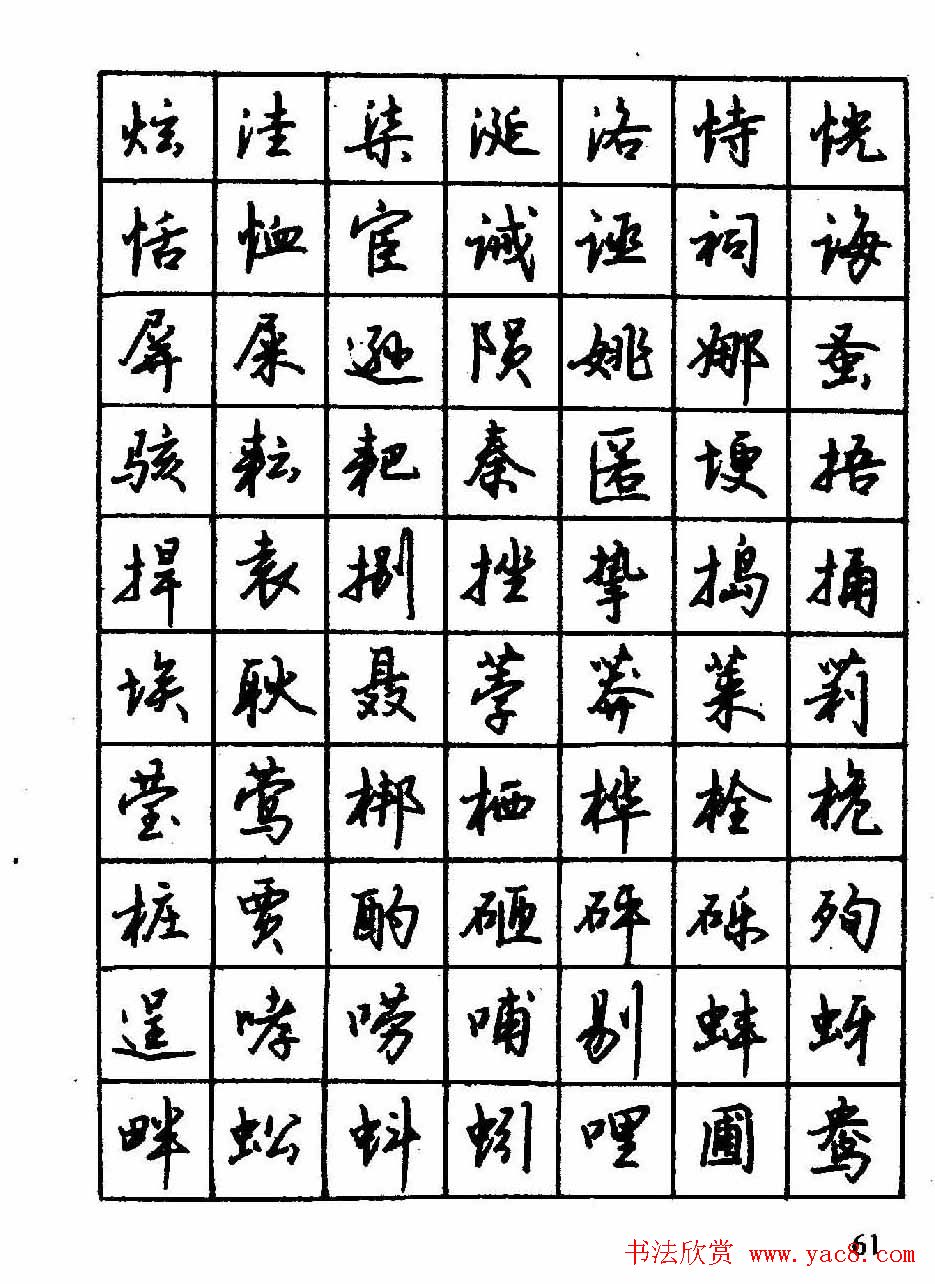 炫 洼 柒 涎 洛 恃 恍
恬 恤 宦 诫 诬 祠 诲
屏 屎 逊 陨 姚 娜 蚤
骇 耘 耙 秦 匿 埂 捂
捍 袁 捌 挫 挚 捣 捅
埃 耿 聂 荸 莽 莱 莉
莹 莺 梆 栖 桦 栓 桅
桩 贾 酌 砸 砰 砾 殉
逞 哮 唠 哺 剔 蚌 蚜
畔 蚣 蚪 蚓 哩 圃 鸯
61
书法欣赏 www.yac8.com